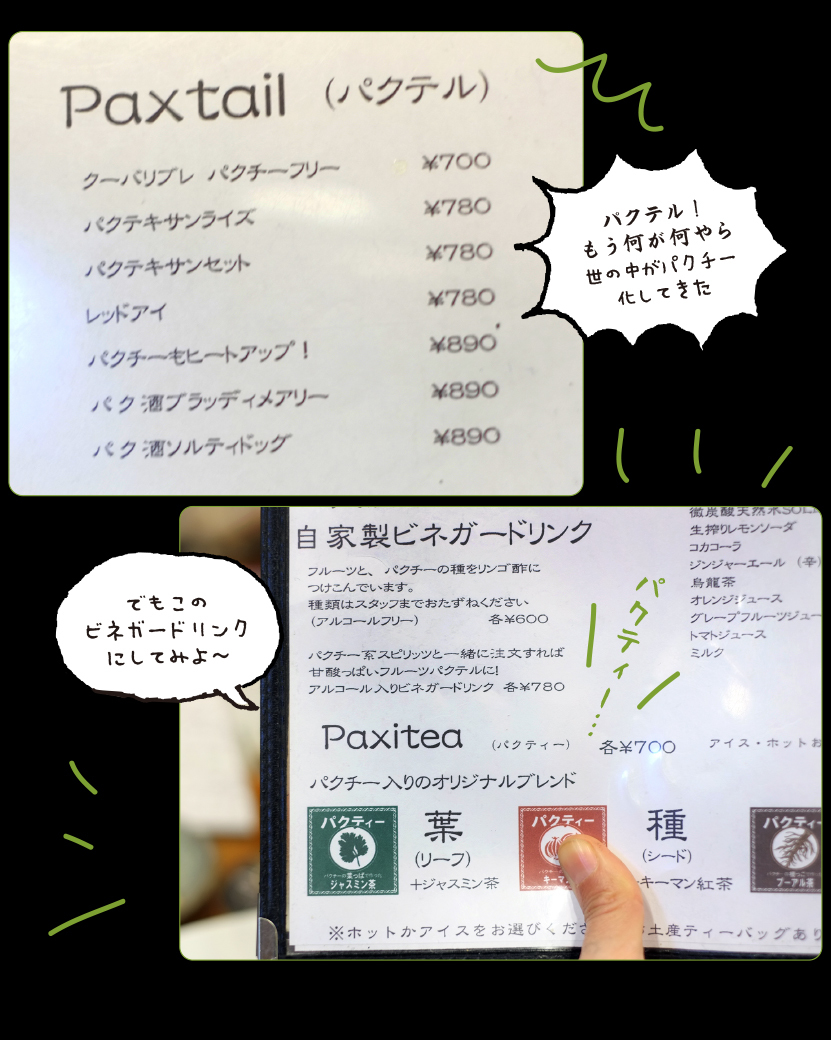 Paxtail (パクテル)
クーバリブレ パクチーフリー ¥700
パクテキサンライズ ¥780
パクテキサンセット ¥780
レッドアイ ¥780
パクチーもヒートアップ! ¥890
パク酒ブラッディメアリー ¥890
パク酒ソルティドッグ ¥890
パクテル!
もう何が何やら
世の中がパクチー
化してきた
でもこの
ビネガードリンク
にしてみよ〜
自家製ビネガードリンク
フルーツと、パクチーの種をリンゴ酢に
つけこんでいます。
種類はスタッフまでおたずねください
(アルコールフリー) 各¥600
パクチー系スピリッツと一緒に注文すれば
甘酸っぱいフルーツパクテルに!
アルコール入りビネガードリンク 各¥780
微炭酸天然水SOL
生搾りレモンソーダ
コカコーラ
ジンジャーエール (辛)
烏龍茶
オレンジジュース
グレープフルーツジュー
トマトジュース
ミルク
パクティー…
Paxitea (パクティー) 各¥700 アイス・ホットお
パクチー入りのオリジナルブレンド
パクティー
パクチーの葉っぱで作った
ジャスミン茶
葉
(リーフ)
+ジャスミン茶
パクティー
キーマ
種
(シード)
キーマン紅茶
パクティー
プーアル茶
※ホットかアイスをお選びくださ
土産ティーバッグあり